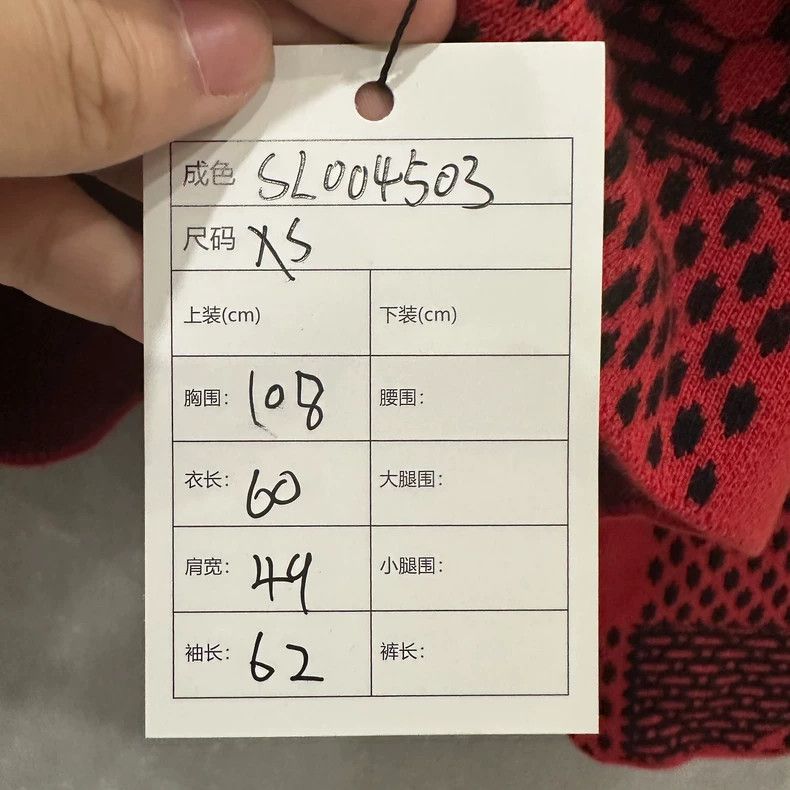 成色 SL004503
尺码 XS
上装(cm) 下装(cm)
胸围: 108 腰围:
衣长: 60 大腿围:
肩宽: 49 小腿围:
袖长: 62 裤长: